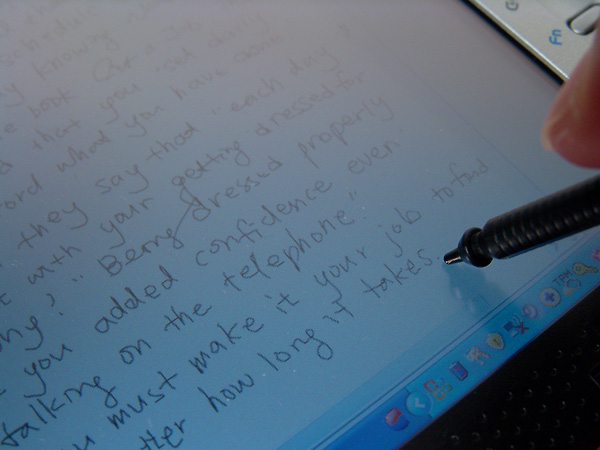 schedule
y knowing
e book Get a Job
d that you "set daily
ord what you have come
they say that "each day
t with your getting dressed for
ny? "Being dressed properly
you added confidence even
talking on the telephone."
u must make it your job to find
tter how long it takes.
Fn